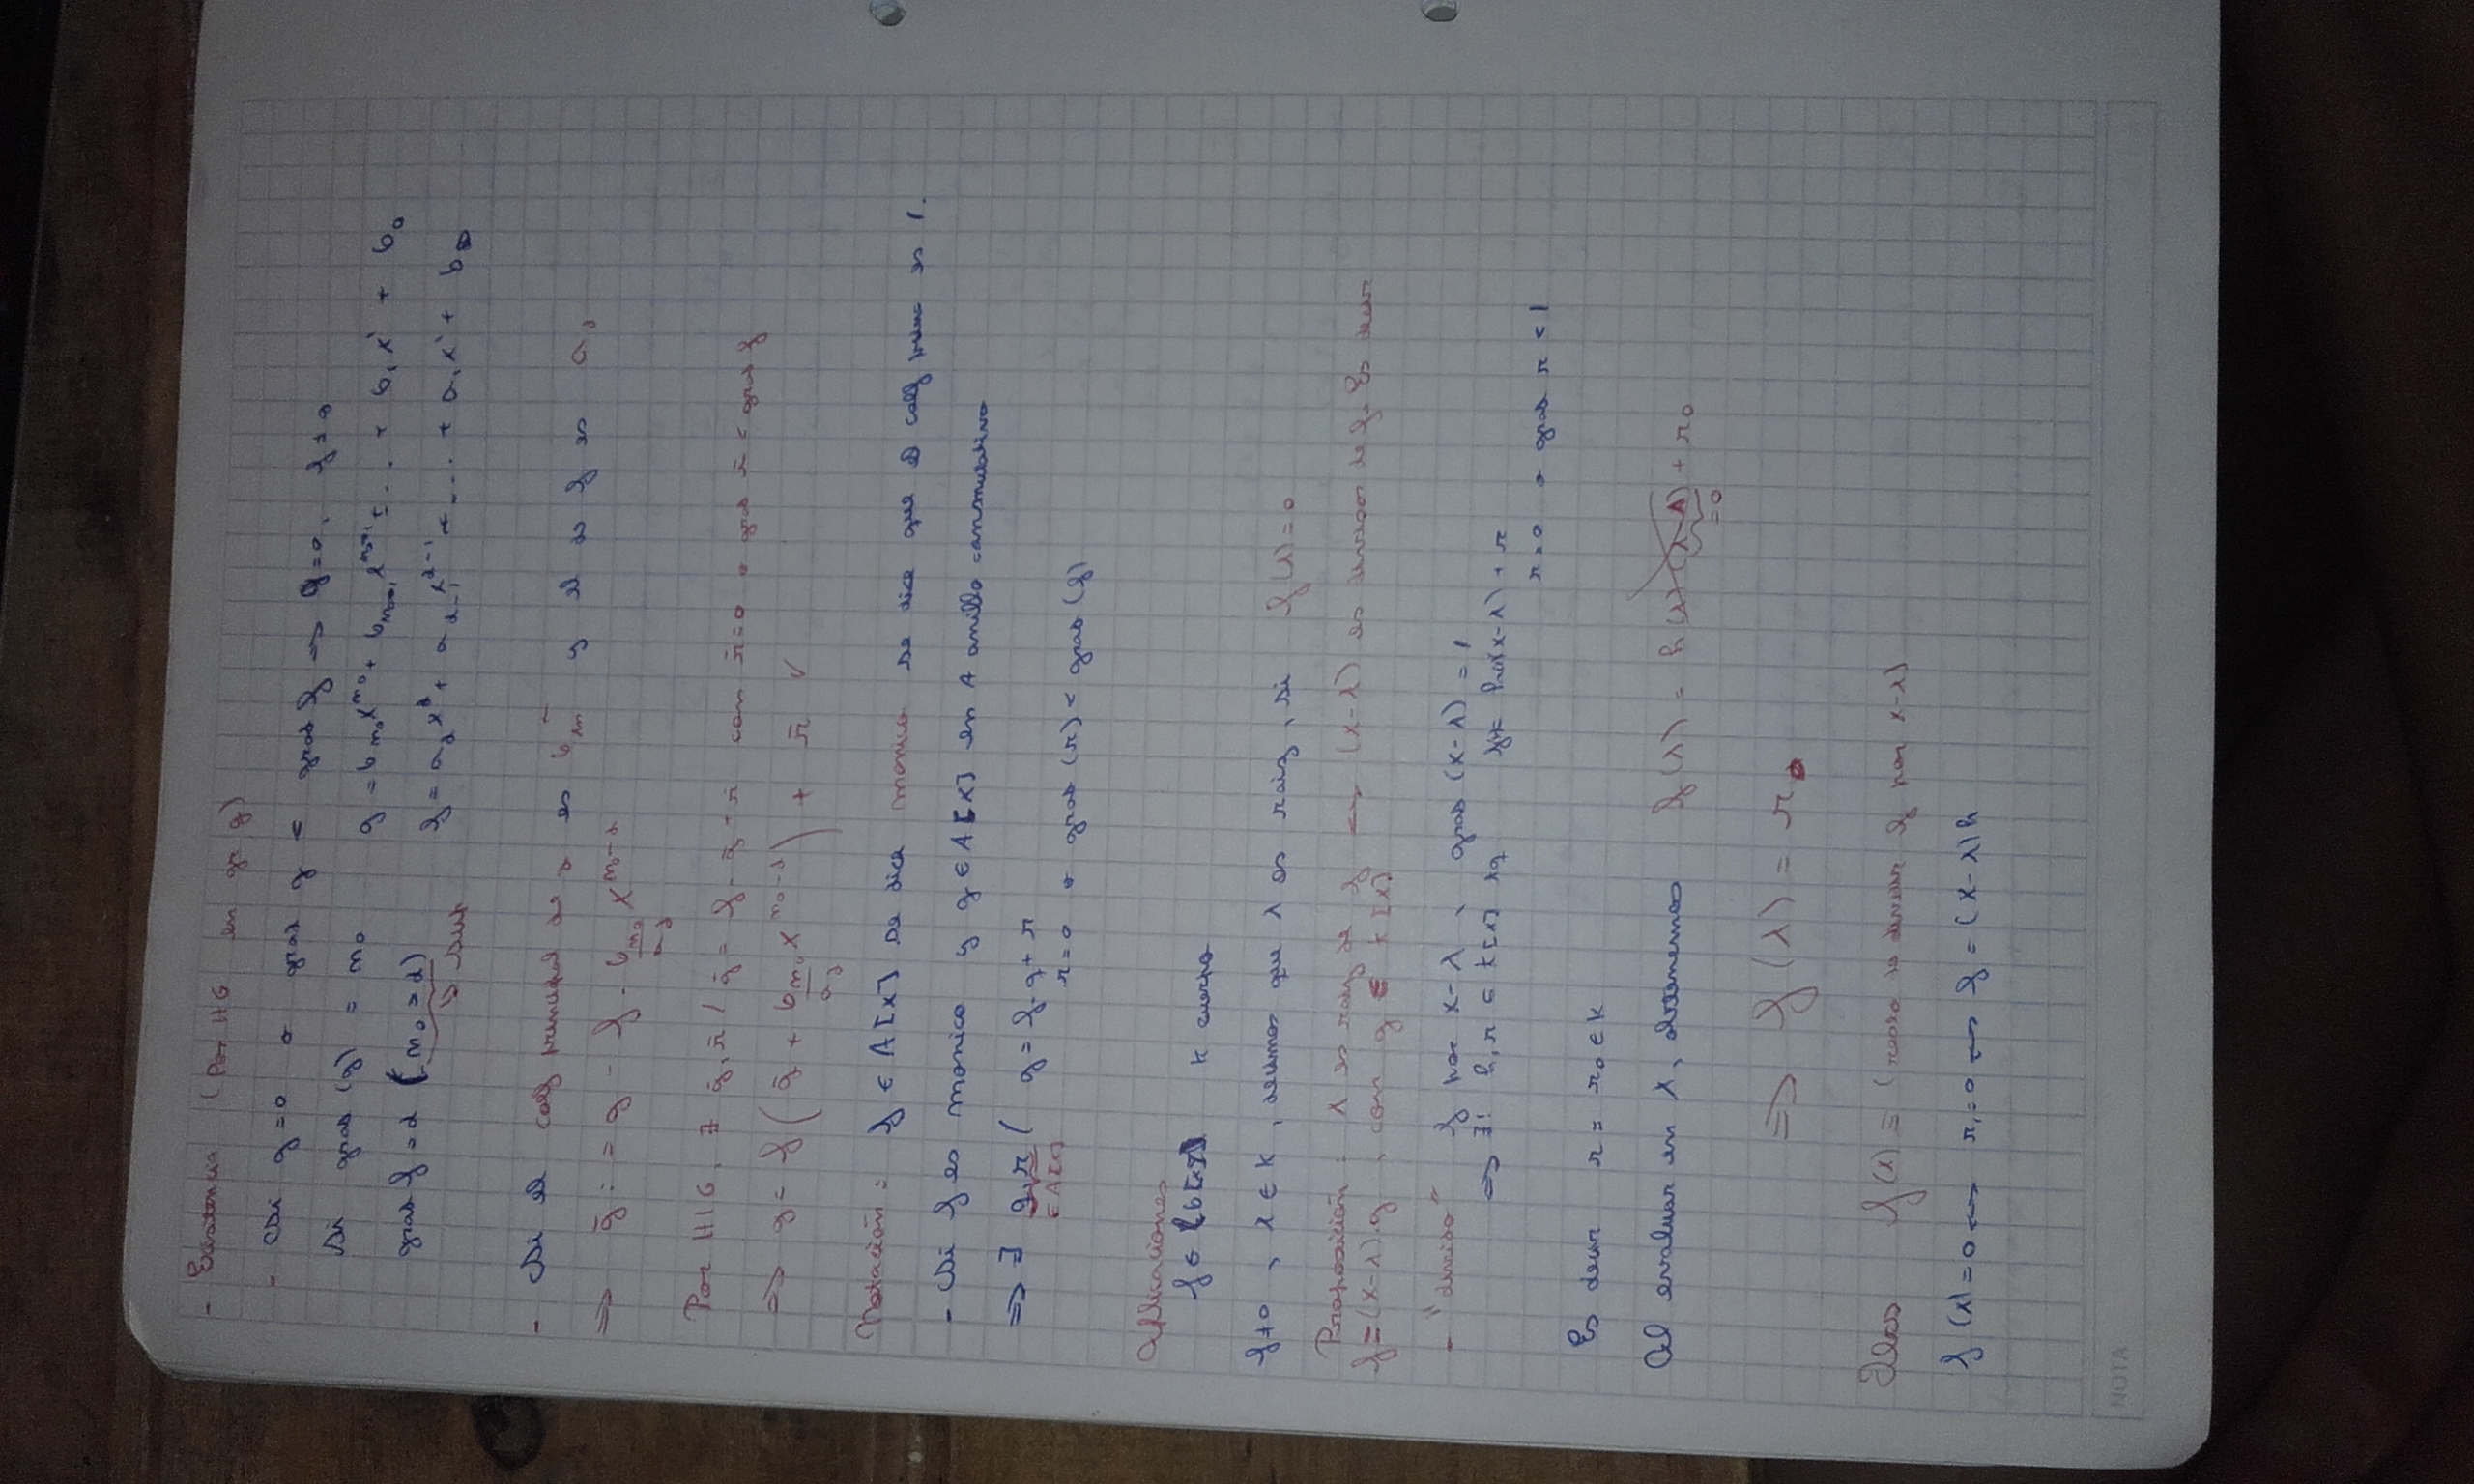 - Existencia (Por HG en gr g)
- Si g=0 o grad g < grad f => q=0,
Si grad (g) = n₀ g = b n₀ x^n₀ + b n₀-1 x^n₀-1 + ... + b₁x¹ + b₀
grad f = d (n₀ > d) f = a_d x^d + a_d-1 x^d-1 + ... + a₁x¹ + b₀
-> sup
- Si el coef principal de g es b_n₀ y el de f es a_d
=> g̃ := g - f . b_n₀/a_d x^n₀-d
Por HIG, ∃ q̄, r̄ / ḡ = f . q̄ + r̄ con r̄=0 o grad r̄ < grad f
=> g = f ( q̄ + b_n₀/a_d x^n₀-d ) + r̄ ✓
Notación: f ∈ A[x] se dice monico se dice que coef princ es 1.
- Si f es monico y g ∈ A[x] en A anillo conmutativo
=> ∃ q, r / g = f.q + r
∈ A[x]
r=0 o grad (r) < grad (f)
Aplicaciones
f ∈ k[x] k cuerpo
f≠0, λ ∈ k, decimos que λ es raiz, si f(λ)=0
Proposición: λ es raiz de f <=> (x-λ) es divisor de f. Es decir
f=(x-λ).g, con g ∈ k[x]
- "divido" f por x-λ, grad (x-λ) = 1
=> ∃! h, r ∈ k[x] tq f = h(x-λ) + r
r=0 o grad r < 1
Es decir r = r₀ ∈ k
Al evaluar en λ, obtenemos f(λ) = h(λ)(λ-λ) + r₀
=0
=> f(λ) = r₀
Idea f(λ) = (resto de dividir f por x-λ)
f(λ)=0 <=> r₀=0 <=> f = (x-λ)h
NOTA